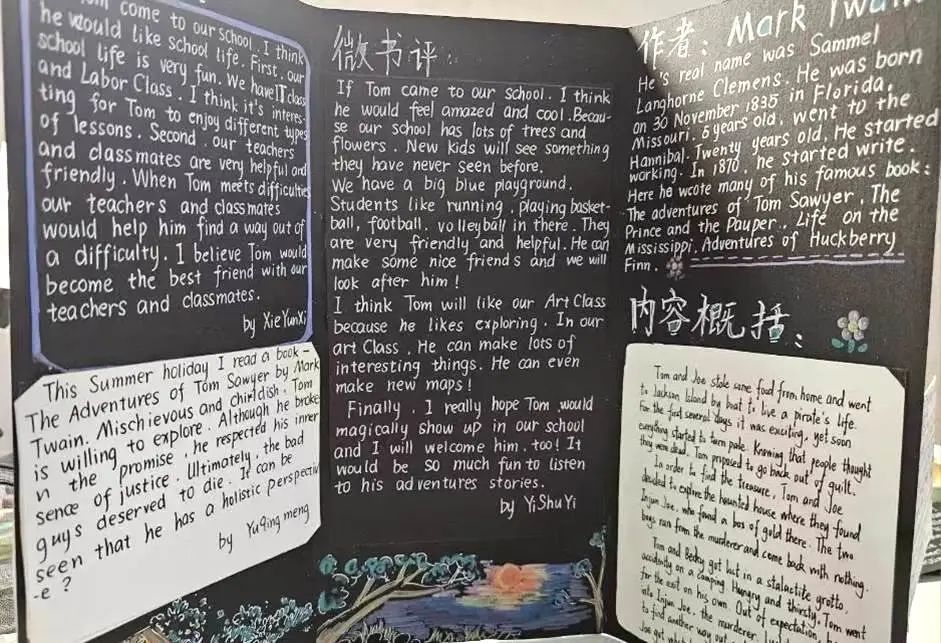 come to our school. I think
he would like school life. First, our
school life is very fun. We have IT class
and Labor Class. I think it's interes-
ting for Tom to enjoy different types
of lessons. Second, our teachers
and classmates are very helpful and
friendly. When Tom meets difficulties
our teachers and classmates
would help him find a way out of
a difficulty. I believe Tom would
become the best friend with our
teachers and classmates.
by XieYunXi
This Summer holiday I read a book-
The Adventures of Tom Sawyer by Mark
Twain. Mischievous and childish, Tom
is willing to explore. Although he broke
n the promise, he respected his inner
sense of justice. Ultimately, the bad
guys deserved to die. It can be
seen that he has a holistic perspectiv
-e?
by Yuqing meng
微书评:
If Tom came to our school. I think
he would feel amazed and cool. Becau-
se our school has lots of trees and
flowers. New kids will see something
they have never seen before.
We have a big blue playground.
Students like running, playing basket-
ball, football, volleyball in there. They
are very friendly and helpful. He can
make some nice friends and we will
look after him!
I think Tom will like our Art Class
because he likes exploring. In our
art Class, He can make lots of
interesting things. He can even
make new maps!
Finally, I really hope Tom would
magically show up in our school
and I will welcome him, too! It
would be so much fun to listen
to his adventures stories.
by YiShuYi
作者: Mark Twain
He's real name was Sammel
Langhorne Clemens. He was born
on 30 November 1835 in Florida,
Missouri. 5 years old, went to the
Hannibal. Twenty years old, He started
working. In 1870, he started write.
Here he wrote many of his famous book:
The adventures of Tom Sawyer, The
Prince and the Pauper, Life on the
Mississippi, Adventures of Huckberry
Finn.
内容概括:
Tom and Joe stole some food from home and went
to Jackson Island by boat to live a pirate's life.
For the first several days it was exciting, yet soon
everything started to turn pale. Knowing that people thought
they were dead, Tom proposed to go back out of guilt.
In order to find the treasure, Tom and Joe
decided to explore the haunted house where they found
Injun Joe, who found a box of gold there. The two
boys ran from the murderer and come back with nothing.
Tom and Becky got lost in a stalactite grotto
accidently on a camping. Hungry and thirsty, Tom went
for the exit on his own. Out of expectation, he
into Injun Joe, the murderer.
to find another way out
Joe got